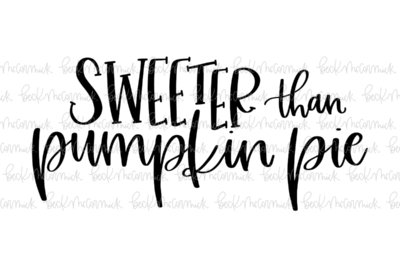 SWEETER than
pumpkin pie